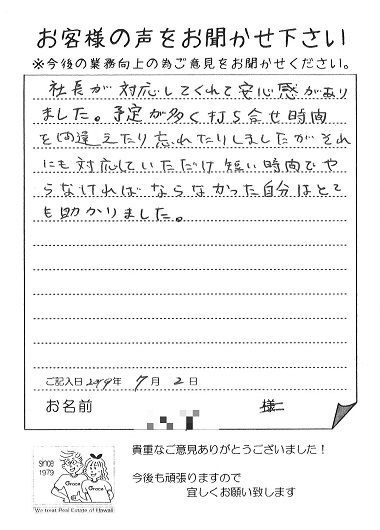 お客様の声をお聞かせ下さい
※今後の業務向上の為ご意見をお聞かせください。
社長が対応してくれて安心感があり
ました。予定が多く打ち合せ時間
を間違えたり忘れたりしましたがそれ
にも対応していただけ短い時間でや
らなければならなかった自分はとて
も助かりました。
ご記入日2019年 7月 2日
お名前 様
貴重なご意見ありがとうございました！
since
1979
Grace Grace
今後も頑張りますので
宜しくお願い致します
We treat Real Estate of Hawaii